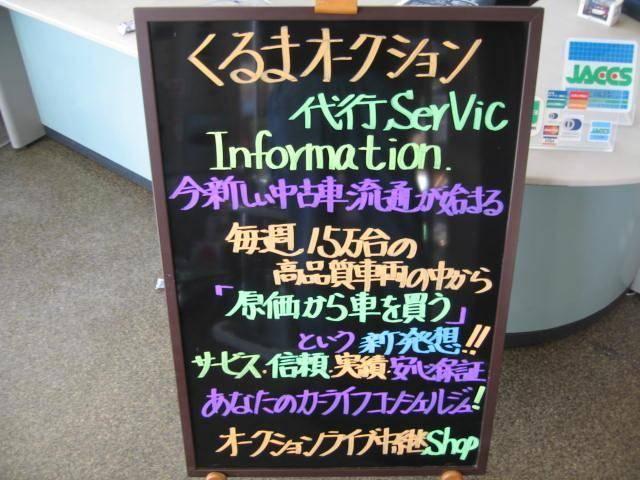 くるまオークション
代行SerVic
Information.
今新しい中古車流通が始まる
毎週15万台の
高品質車両の中から
「原価から車を買う」
という新発想!!
サービス・信頼・実績・安心保証
あなたのカーライフコンシェルジュ!
オークションライブ中継Shop
JACCS